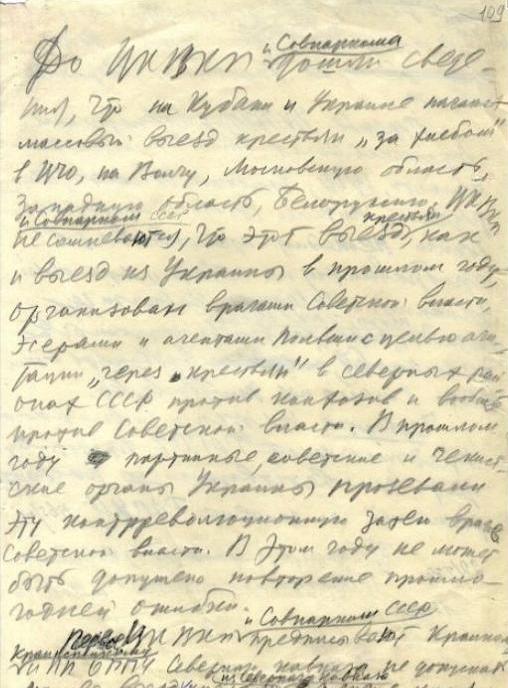 109
и Совнаркома
До ЦК ВКП дошли сведе-
ния, что на Кубани и Украине начался
массовый выезд крестьян „за хлебом"
в ЦЧО, на Волгу, Московскую область,
Западную область, Белоруссию. ЦК ВКП
и Совнарком СССР крестьян
не сомневаются, что этот выезд, как
и выезд из Украины в прошлом году,
организован врагами Советской власти,
эсерами и агентами Польши с целью аги-
тации „через крестьян" в северных рай-
онах СССР против колхозов и вообще
против Советской власти. В прошлом
году партийные, советские и чекист-
ские органы Украины прозевали
эту контрреволюционную затею врагов
Советской власти. В этом году не может
быть допущено повторение прошло-
годней ошибки.
и Совнарком СССР
Первое ЦК ВКП предписывают Крайком
Крайисполкому
и ПП ОГПУ Северного Кавказа не допускать
из Северного Кавказа